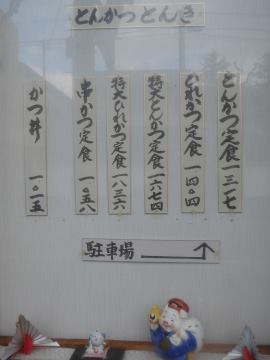 とんかつとんき
とんかつ定食 一三一七
ひれかつ定食 一四〇四
特大とんかつ定食 一六七四
特大ひれかつ定食 一八三六
串かつ定食 一〇五八
かつ丼 一〇一五
駐車場